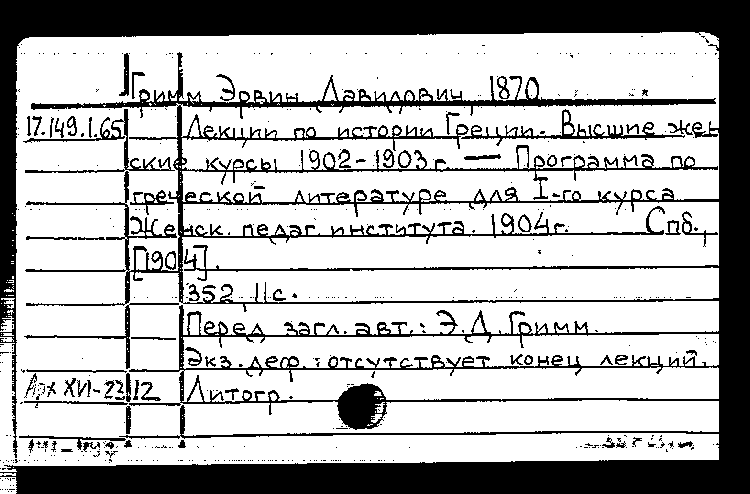 Гримм, Эрвин Давидович, 1870
17.149.1.65 Лекции по истории Греции. Высшие жен
ские курсы 1902-1903г. — Программа по
греческой литературе для I-го курса
Женск. педаг. института. 1904г. Спб.,
[1904].
352, 11с.
Перед загл. авт.: Э.Д. Гримм.
Экз. деф.: отсутствует конец лекций.
Арх XVI-23/12 Литогр.